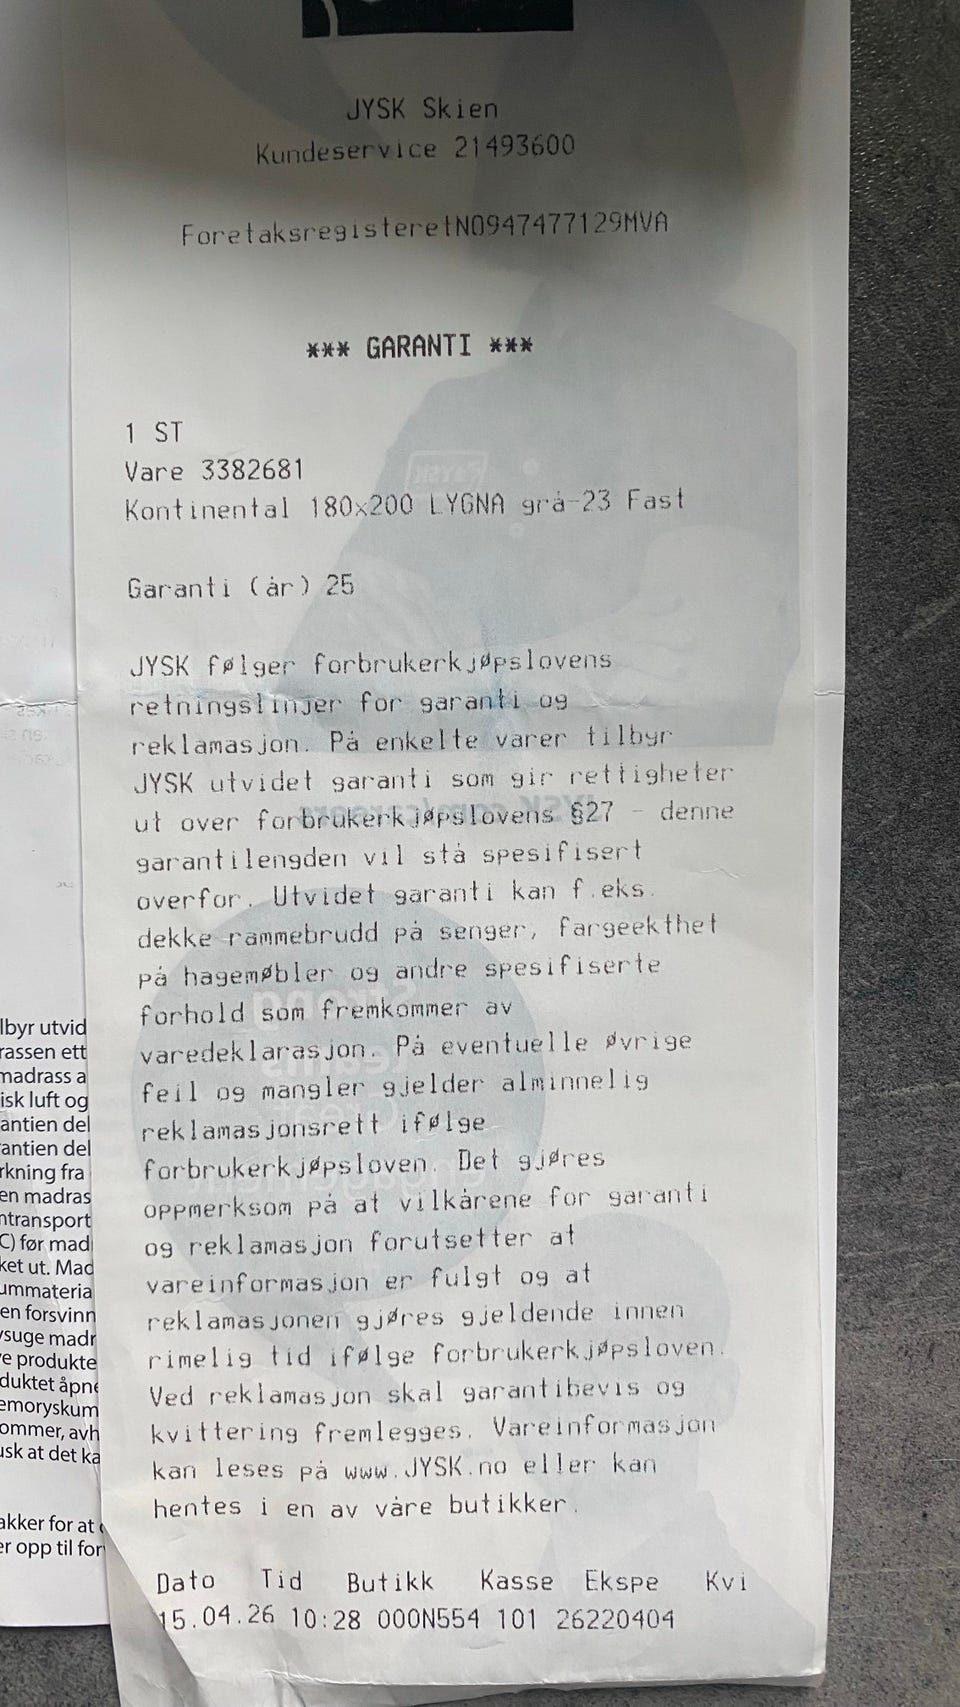 JYSK Skien
Kundeservice 21493600
ForetaksregisteretNO947477129MVA
*** GARANTI ***
1 ST
Vare 3382681
Kontinental 180x200 LYGNA grå-23 Fast
Garanti (år) 25
JYSK følger forbrukerkjøpslovens
retningslinjer for garanti og
reklamasjon. På enkelte varer tilbyr
JYSK utvidet garanti som gir rettigheter
ut over forbrukerkjøpslovens §27 - denne
garantilengden vil stå spesifisert
overfor. Utvidet garanti kan f.eks.
dekke rammebrudd på senger, fargeekthet
på hagemøbler og andre spesifiserte
forhold som fremkommer av
varedeklarasjon. På eventuelle øvrige
feil og mangler gjelder alminnelig
reklamasjonsrett ifølge
forbrukerkjøpsloven. Det gjøres
oppmerksom på at vilkårene for garanti
og reklamasjon forutsetter at
vareinformasjon er fulgt og at
reklamasjonen gjøres gjeldende innen
rimelig tid ifølge forbrukerkjøpsloven.
Ved reklamasjon skal garantibevis og
kvittering fremlegges. Vareinformasjon
kan leses på www.JYSK.no eller kan
hentes i en av våre butikker.
Dato Tid Butikk Kasse Ekspe Kvi
15.04.26 10:28 000N554 101 26220404
lbyr utvid
rassen ett
madrass a
isk luft og
antien del
rantien del
rkning fra
en madras
ntransport
C) før mad
ket ut. Mad
ummateria
en forsvinn
vsuge madr
e produkte
duktet åpne
emoryskum
ommer, avh
usk at det ka
akker for at
er opp til for